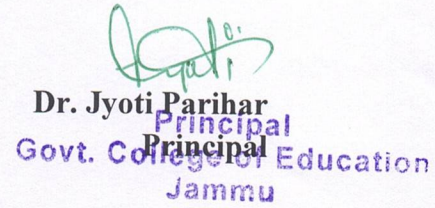 Jyoti
Dr. Jyoti Parihar
Principal
Principal
Govt. College of Education
Jammu